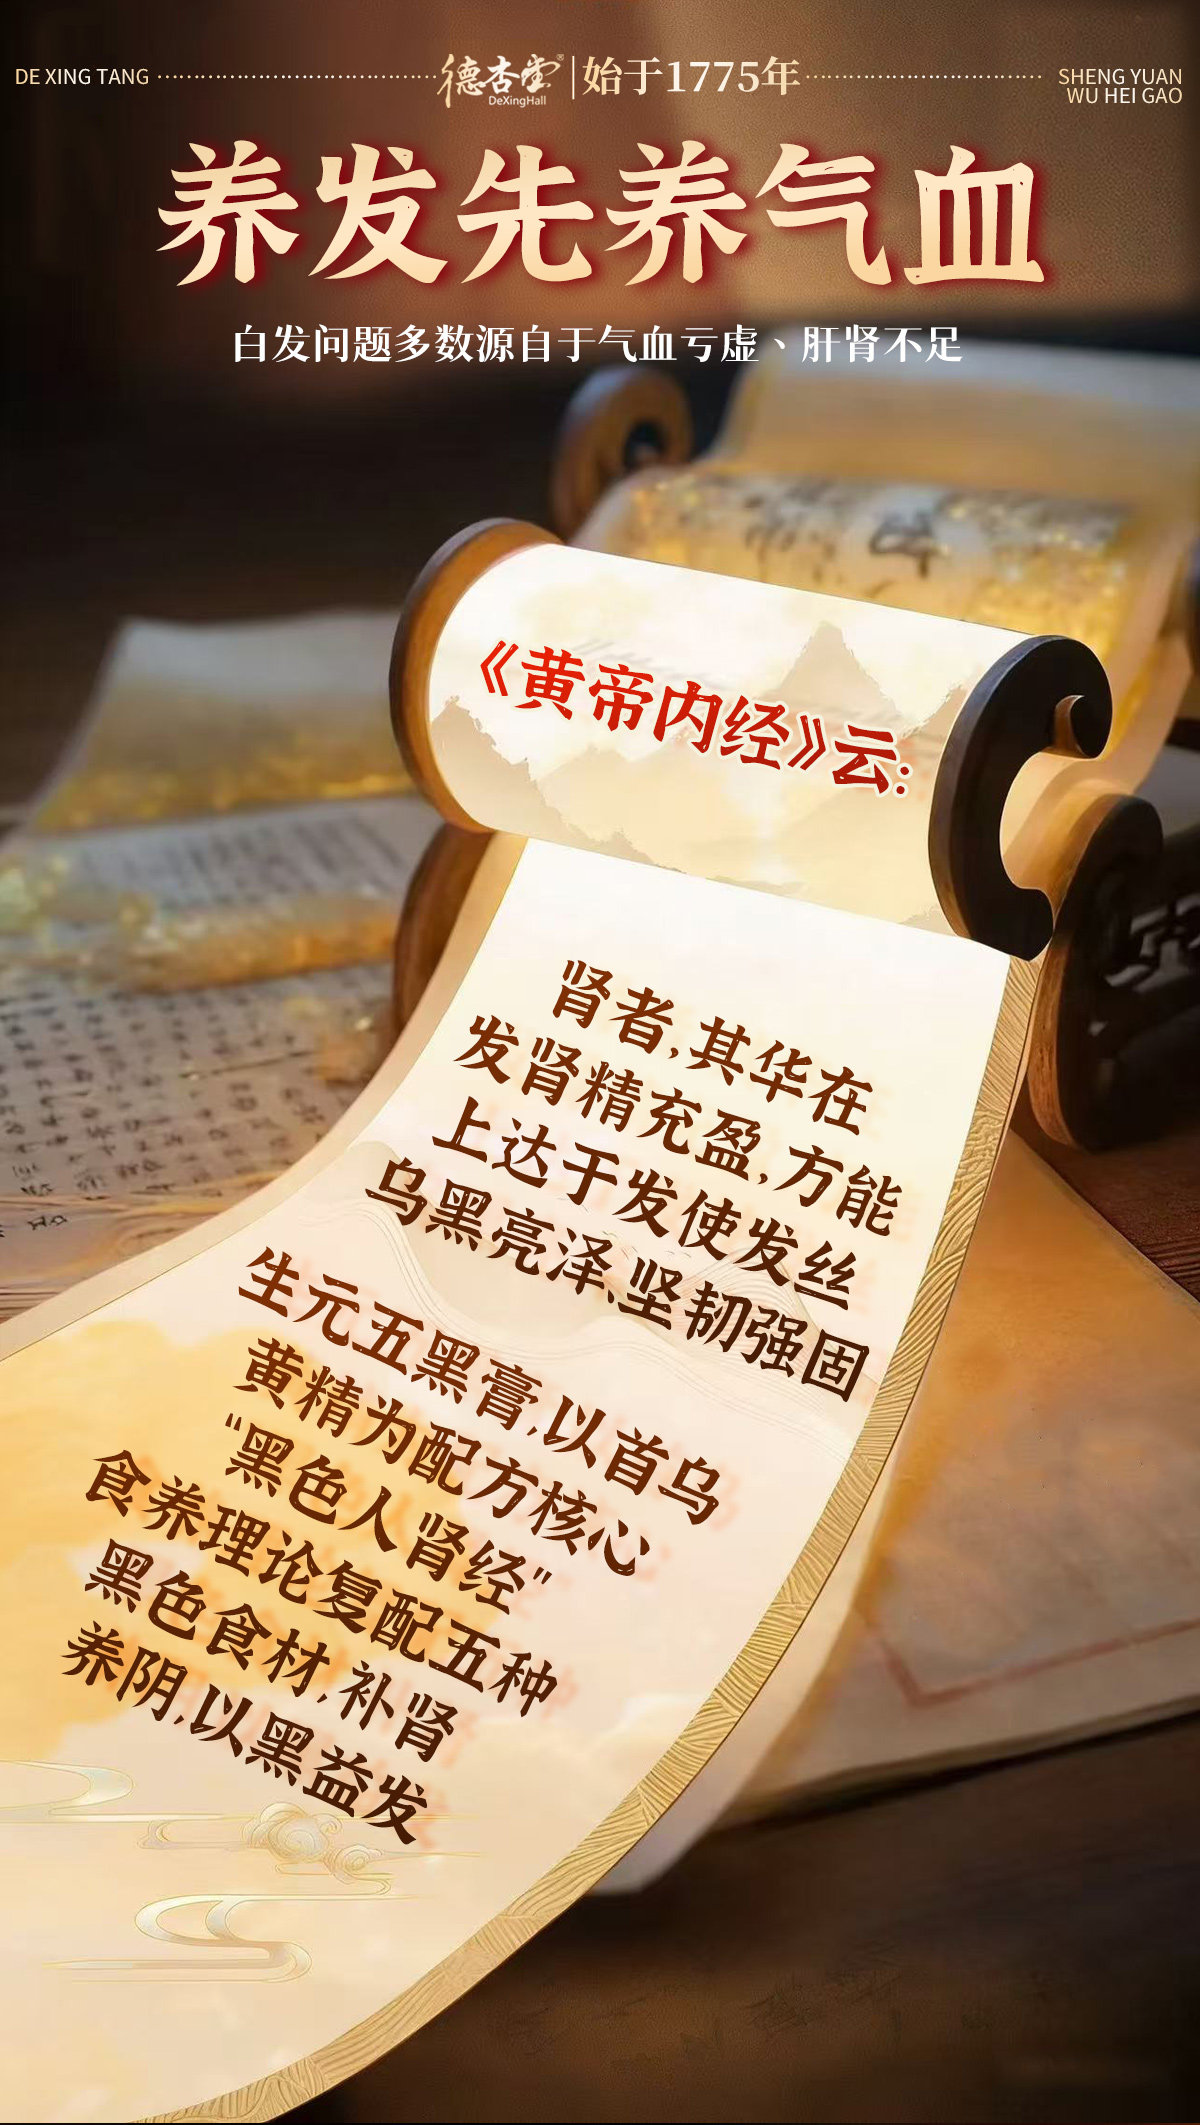 DE XING TANG
德杏堂®
DeXingHall
始于1775年
SHENG YUAN
WU HEI GAO
养发先养气血
白发问题多数源自于气血亏虚、肝肾不足
《黄帝内经》云:
肾者,其华在
发肾精充盈,方能
上达于发使发丝
乌黑亮泽、坚韧强固
生元五黑膏,以首乌
黄精为配方核心
“黑色人肾经”
食养理论复配五种
黑色食材,补肾
养阴,以黑益发